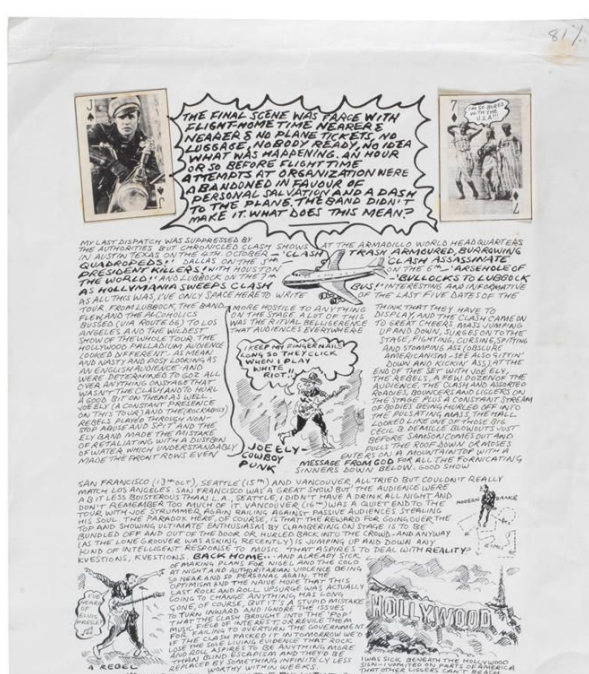 81%
J
THE FINAL SCENE WAS FARCE WITH
FLIGHT HOME TIME NEARER &
NEARER & NO PLANE TICKETS, NO
LUGGAGE, NOBODY READY, NO IDEA
WHAT WAS HAPPENING. AN HOUR
OR SO BEFORE FLIGHT TIME
ATTEMPTS AT ORGANIZATION WERE
ABANDONED IN FAVOUR OF
PERSONAL SALVATION AND A DASH
TO THE PLANE, THE BAND DIDN'T
MAKE IT. WHAT DOES THIS MEAN?
7
I'M SO BORED
WITH THE
U.S.A!!!
7
MY LAST DISPATCH WAS SUPPRESSED BY
THE AUTHORITIES BUT CHRONICLED CLASH SHOWS AT THE ARMADILLO WORLD HEADQUARTERS
IN AUSTIN TEXAS ON THE 4TH. OCTOBER - 'CLASH TRASH ARMOURED, BURROWING
QUADROPEDS!' DALLAS ON THE 5TH 'CLASH ASSASSINATE
PRESIDENT KILLERS!' WITH HOUSTON ON THE 6TH - 'ARSEHOLE OF
THE WORLD!' AND LUBBOCK ON THE 7TH 'BULLOCKS TO LUBBOCK
AS HOLLYMANIA SWEEPS CLASH BUS!' INTERESTING AND INFORMATIVE
AS ALL THIS WAS, I'VE ONLY SPACE HERE TO WRITE OF THE LAST FIVE DATES OF THE
TOUR. FROM LUBBOCK, THE BAND,
FLEW AND THE ALCOHOLICS
BUSSED (VIA ROUTE 66) TO LOS
ANGELES AND THE WILDEST
SHOW OF THE WHOLE TOUR. THE
HOLLYWOOD PALLADIUM AUDIENCE
LOOKED DIFFERENT. AS MEAN
AND NASTY AND POSY LOOKING AS
AN ENGLISH AUDIENCE AND
WERE DETERMINED TO GOZ ALL
OVER ANYTHING ONSTAGE THAT
WASN'T THE CLASH AND TO HURL
A GOOD BIT ON THEM AS WELL.
JOE ELY (A CONSTANT PRESENCE
ON THIS TOUR) AND THE (ROCKABILLY)
REBELS PLAYED THROUGH NON-
STOP ABUSE AND SPIT AND THE
ELY BAND MADE THE MISTAKE
OF RETALIATING WITH A DUSTBIN
OF WATER, WHICH UNDERSTANDABLY
MADE THE FRONT ROWS EVEN
MORE HOSTILE TO ANYTHING
ON THE STAGE. A LOT OF THIS
WAS THE RITUAL BELLIGERENCE
THAT AUDIENCES EVERYWHERE
I KEEP MY FINGERNAILS
LONG SO THEY CLICK
WHEN I PLAY
WHITE
RIOT!!
JOE ELY -
COWBOY
PUNK
THINK THAT THEY HAVE TO
DISPLAY, AND THE CLASH CAME ON
TO GREAT CHEERS, MASS JUMPING
UP AND DOWN, SURGES ON TO THE
STAGE, FIGHTING, CURSING, SPITTING
AND STOMPING ASS (OBSCURE
AMERICANISM - SEE ALSO GITTIN'
DOWN AND KICKIN' ASS). AT THE
END OF THE SET WITH JOE ELY,
THE REBELS, A FEW DOZEN OF THE
AUDIENCE, THE CLASH AND ASSORTED
ROADIES, BOUNCERS AND LIGGERS ON
THE STAGE PLUS A CONSTANT STREAM
OF BODIES BEING HURLED OFF INTO
THE PULSATING MASS, THE HALL
LOOKED LIKE ONE OF THOSE BIG
CECIL B. DEMILLE BLOWOUTS JUST
BEFORE SAMSON COMES OUT AND
PULLS THE ROOF DOWN OR MOSES
ENTERS ON A MOUNTAIN TOP WITH A
MESSAGE FROM GOD FOR ALL THE FORNICATING
SINNERS DOWN BELOW. GOOD SHOW
SAN FRANCISCO (13TH OCT), SEATTLE (15TH) AND VANCOUVER ALL TRIED BUT COULDN'T REALLY
MATCH LOS ANGELES. SAN FRANCISCO WAS A GREAT SHOW BUT THE AUDIENCE WERE
A BIT LESS BOISTEROUS THAN L.A., SEATTLE, I DIDN'T HAVE A DRINK ALL NIGHT AND
DON'T REMEMBER TOO MUCH OF IT. VANCOUVER (16TH) WAS A QUIET END TO THE
TOUR WITH JOE STRUMMER AGAIN RAILING AGAINST PASSIVE AUDIENCES STEALING
HIS SOUL. THE PARADOX HERE, OF COURSE, IS THAT THE REWARD FOR GOING OVER THE
TOP AND SHOWING ULTIMATE ENTHUSIASM BY CLAMBERING ON STAGE IS TO BE
BUNDLED OFF AND OUT OF THE DOOR, OR HURLED BACK INTO THE CROWD - AND ANYWAY
(AS THE LONE GROOVER WAS ASKING RECENTLY) IS JUMPING UP AND DOWN ANY
KIND OF INTELLIGENT RESPONSE TO MUSIC THAT ASPIRES TO DEAL WITH REALITY?
KVESTIONS, KVESTIONS. BACK HOME.. AND ALREADY, SICK
MODERN DANCE
OF MAKING PLANS FOR NIGEL AND THE COLD
AT NIGHT AND AUTHORITARIAN VIOLENCE BEING
SO NEAR AND SO PERSONAL AGAIN. THE
OPTIMISM AND THE NAIVE HOPE THAT THIS
LAST ROCK AND ROLL UPSURGE WAS ACTUALLY
GOING TO CHANGE ANYTHING HAS LONG
GONE, OF COURSE, BUT IT'S A STUPID MISTAKE
TO TURN INWARD AND IGNORE THE ISSUES
THAT THE CLASH BROUGHT INTO THE 'POP'
MUSIC FIELD OF INTEREST, OR REVILE THEM
FOR 'FAILING TO OVERTURN THE GOVERNMENT'
IF THE CLASH PACKED IT IN TOMORROW WE'D
LOSE THE SOLE LIVING EVIDENCE THAT ROCK
AND ROLL ASPIRES TO BE ANYTHING MORE
THAN BLIND ESCAPISM AND THEY'D BE
REPLACED BY SOMETHING INFINITELY LESS
WORTHY WITHIN WEEKS.
A REBEL
HOLLYWOOD
I WAS SICK BENEATH THE HOLLYWOOD
SIGN - I VOMITED ON PARTS OF AMERICA
THAT OTHER LIGGERS CAN'T REACH